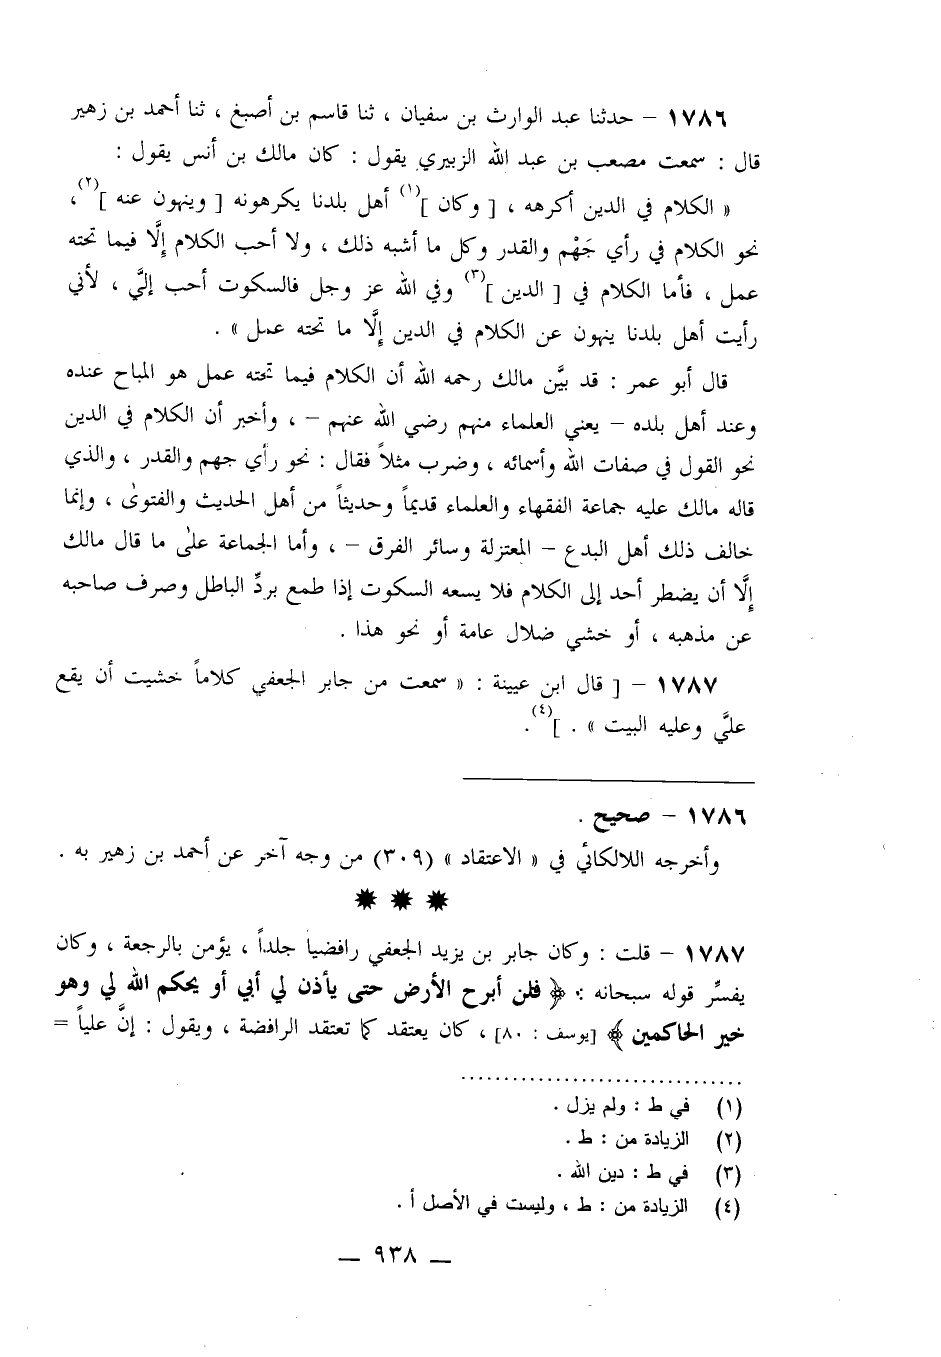 ١٧٨٦ – حدثنا عبد الوارث بن سفيان ، ثنا قاسم بن أصبغ ، ثنا أحمد بن زهير
قال : سمعت مصعب بن عبد الله الزبيري يقول : كان مالك بن أنس يقول :
« الكلام في الدين أكرهه ، [ وكان ](١) أهل بلدنا يكرهونه [ وينهون عنه ](٢)،
نحو الكلام في رأي جَهْم والقدر وكل ما أشبه ذلك ، ولا أحب الكلام إلَّا فيما تحته
عمل ، فأما الكلام في [ الدين ](٣) وفي الله عز وجل فالسكوت أحب إليَّ ، لأني
رأيت أهل بلدنا ينهون عن الكلام في الدين إلَّا ما تحته عمل » .
قال أبو عمر : قد بيَّن مالك رحمه الله أن الكلام فيما تحته عمل هو المباح عنده
وعند أهل بلده – يعني العلماء منهم رضي الله عنهم – ، وأخبر أن الكلام في الدين
نحو القول في صفات الله وأسمائه ، وضرب مثلاً فقال : نحو رأي جهم والقدر ، والذي
قاله مالك عليه جماعة الفقهاء والعلماء قديماً وحديثاً من أهل الحديث والفتوىٰ ، وإنما
خالف ذلك أهل البدع – المعتزلة وسائر الفرق – ، وأما الجماعة علىٰ ما قال مالك
إلَّا أن يضطر أحد إلى الكلام فلا يسعه السكوت إذا طمع بردِّ الباطل وصرف صاحبه
عن مذهبه ، أو خشي ضلال عامة أو نحو هذا .
١٧٨٧ – [ قال ابن عيينة : « سمعت من جابر الجعفي كلاماً خشيت أن يقع
عليَّ وعليه البيت » . ](٤).
١٧٨٦ – صحيح .
وأخرجه اللالكائي في « الاعتقاد » (٣٠٩) من وجه آخر عن أحمد بن زهير به .
١٧٨٧ – قلت : وكان جابر بن يزيد الجعفي رافضياً جلداً ، يؤمن بالرجعة ، وكان
يفسِّر قوله سبحانه : ﴿ فلن أبرح الأرض حتى يأذن لي أبي أو يحكم الله لي وهو
خير الحاكمين ﴾ [يوسف : ٨٠] ، كان يعتقد كما تعتقد الرافضة ، ويقول : إنَّ علياً =
(١) في ط : ولم يزل .
(٢) الزيادة من : ط .
(٣) في ط : دين الله .
(٤) الزيادة من : ط ، وليست في الأصل أ .
– ٩٣٨ –